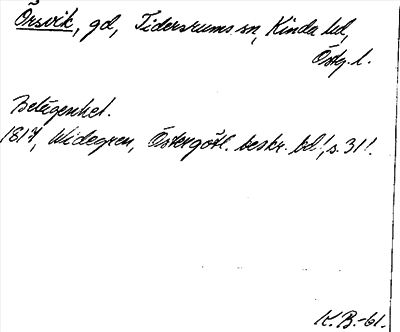 Örsvik, gd, Tidersrums sn, Kinda hd,
Östg. l.
Betegenhet.
1817, Widegren, Östergötl. beskr. bd!, s. 31!.
K.B.-61.